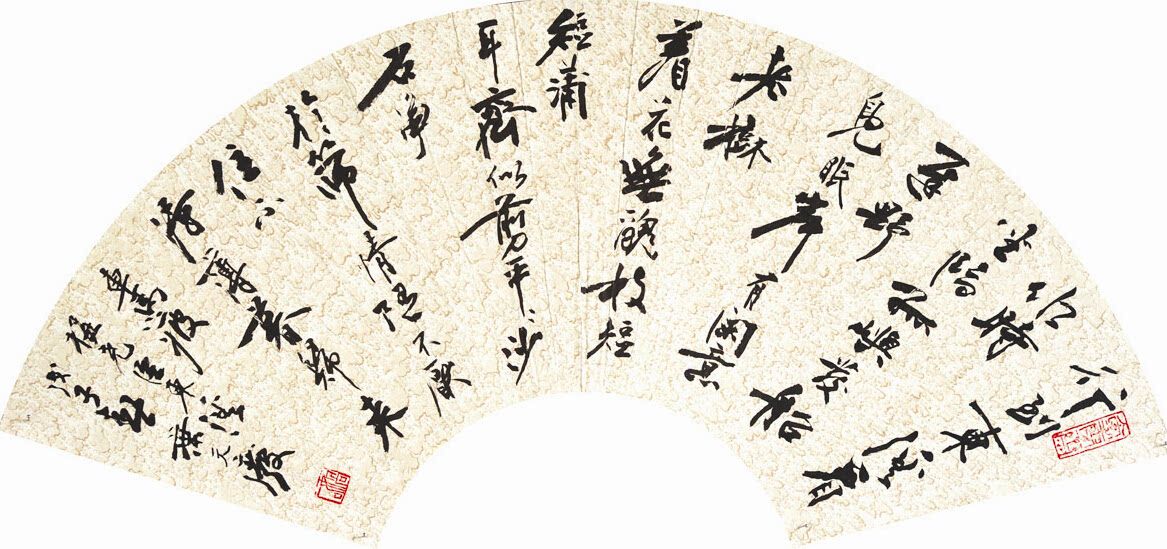 行到東溪看
水時
坐臨孤嶼發船遲
野
鳧眠岸有閑意
老樹
着花無醜枝短
短蒲
齊似剪平沙
石淨
於篩情雖不厭
住不
得薄暮歸來
車馬疲
梅堯臣東溪
戊子夏